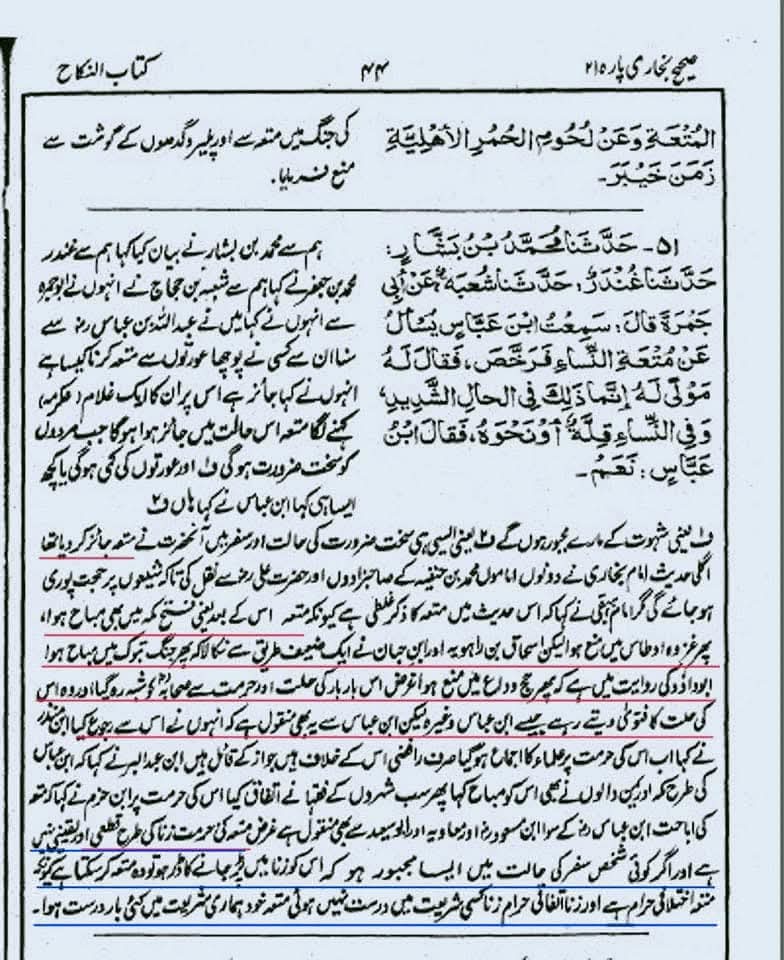 صحیح بخاری پارہ ۲۱
۴۴
کتاب النکاح
الْمُتْعَةِ وَعَنْ لُحُومِ الْحُمُرِ الْأَهْلِيَّةِ
زَمَنَ خَيْبَرَ۔
کی جنگ میں متعہ سے اور پلیرو گدھوں کے گوشت سے
منع فرمایا۔
۵۱۔ حَدَّثَنَا مُحَمَّدُ بْنُ بَشَّارٍ:
حَدَّثَنَا غُنْدَرٌ: حَدَّثَنَا شُعْبَةُ عَنْ أَبِي
جَمْرَةَ قَالَ: سَمِعْتُ ابْنَ عَبَّاسٍ يُسْأَلُ
عَنْ مُتْعَةِ النِّسَاءِ فَرَخَّصَ، فَقَالَ لَهُ
مَوْلًى لَهُ إِنَّمَا ذَلِكَ فِي الْحَالِ الشَّدِيدِ،
وَفِي النِّسَاءِ قِلَّةٌ أَوْ نَحْوَهُ، فَقَالَ ابْنُ
عَبَّاسٍ: نَعَمْ۔
ہم سے محمد بن بشار نے بیان کیا کہا ہم سے غندر
محمد بن جعفر نے کہا ہم سے شعبہ بن حجاج نے انہوں نے ابو جمرہ
سے انہوں نے کہا میں نے عبداللہ بن عباس رض سے
سنا ان سے کسی نے پوچھا عورتوں سے متعہ کرنا کیسا ہے
انہوں نے کہا جائز ہے اس پر ان کا ایک غلام (عکرمہ)
کہنے لگا متعہ اس حالت میں جائز ہوا ہوگا جب مردوں
کو سخت ضرورت ہوگی ف۱ اور عورتوں کی کمی ہوگی یا کچھ
ایسا ہی کہا ابن عباس نے کہا ہاں ف۲
ف۱ یعنی شہوت کے مارے مجبور ہوں گے ف۲ یعنی ایسی ہی سخت ضرورت کی حالت اور سفر میں آنحضرت نے متعہ جائز کر دیا تھا
اگلی حدیث امام بخاری نے دونوں اماموں محمد بن حنفیہ کے صاحبزادوں اور حضرت علی رض سے نقل کی تاکہ شیعوں پر حجت پوری
ہو جائے گی مگر امام بیہقی نے کہا کہ اس حدیث میں متعہ کا ذکر غلطی ہے کیونکہ متعہ اس کے بعد یعنی فتح مکہ میں بھی مباح ہوا،
پھر غزوہ اوطاس میں منع ہوا لیکن اسحاق بن راہویہ اور ابن حبان نے ایک ضعیف طریق سے نکالا کہ پھر جنگ تبوک میں مباح ہوا
ابو داؤد کی روایت میں ہے کہ پھر حج وداع میں منع ہوا غرض اس بار بار کی حلت اور حرمت سے صحابہ کو شبہ رہ گیا اور وہ اس
کی حلت کا فتویٰ دیتے رہے جیسے ابن عباس وغیرہ لیکن ابن عباس سے یہ بھی منقول ہے کہ انہوں نے اس سے رجوع کیا ابن منذر
نے کہا اب اس کی حرمت پر علماء کا اجماع ہوگیا صرف رافضی اس کے خلاف ہیں جواز کے قائل ہیں ابن عبد البر نے کہا کہ ابن عباس
کی طرح مکہ اور یمن والوں نے بھی اس کو مباح کہا پھر سب شہروں کے فقہا نے اتفاق کیا اس کی حرمت پر ابن حزم نے کہا کہ متعہ
کی اباحت ابن عباس رض کے سوا ابن مسعود رض اور معاویہ اور ابو سعید سے بھی منقول ہے غرض متعہ کی حرمت زنا کی طرح قطعی اور یقینی نہیں
ہے اور اگر کوئی شخص سفر کی حالت میں ایسا مجبور ہو کہ اس کو زنا میں پڑ جانے کا ڈر ہو تو وہ متعہ کر سکتا ہے کیونکہ
متعہ اختلافی حرام ہے اور زنا اتفاقی حرام زنا کسی شریعت میں درست نہیں ہوئی متعہ خود ہماری شریعت میں کئی بار درست ہوا۔